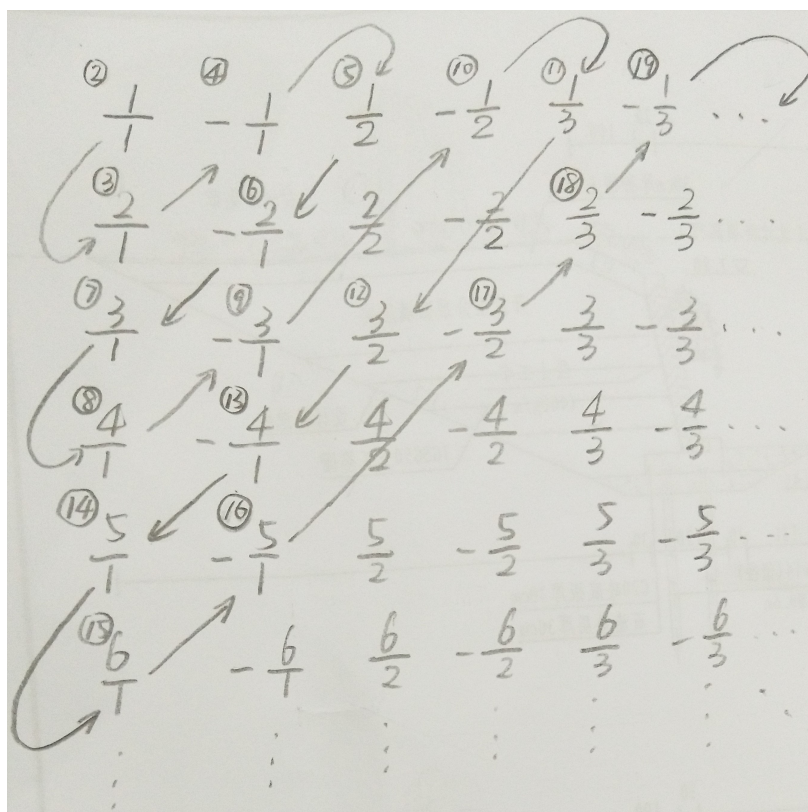 ② 1/1 ④ -1/1 ⑤ 1/2 ⑩ -1/2 ⑪ 1/3 ⑲ -1/3 ...
③ 2/1 ⑥ -2/1 2/2 -2/2 ⑱ 2/3 -2/3 ...
⑦ 3/1 ⑨ -3/1 ⑫ 3/2 ⑰ -3/2 3/3 -3/3 ...
⑧ 4/1 ⑬ -4/1 4/2 -4/2 4/3 -4/3 ...
⑭ 5/1 ⑯ -5/1 5/2 -5/2 5/3 -5/3 ...
⑮ 6/1 -6/1 6/2 -6/2 6/3 -6/3 ...